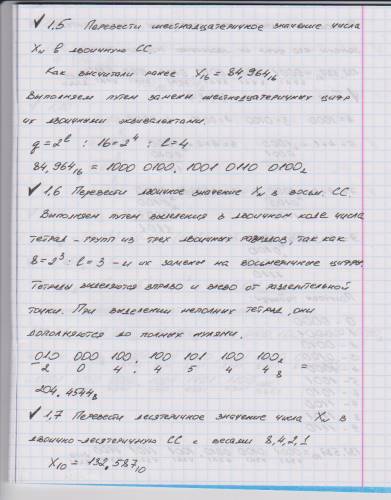 ✓ 1,5 Перевести шестнадцатеричное значение числа
Xн в двоичную СС.
Как высчитали ранее X₁₆ = 84,964₁₆
Выполняем путем замены шестнадцатеричных цифр
их двоичными эквивалентами.
g=2ˡ : 16=2⁴ : l=4
84,964₁₆ = 1000 0100, 1001 0110 0100₂
✓ 1,6 Перевести двоичное значение Xн в восьм. СС.
Выполняем путем выделения в двоичном коде числа
тетрад - групп из трех двоичных разрядов, так как
8=2³ : l=3 - и их замены на восьмеричные цифры.
Тетрады выделяются вправо и влево от разделительной
точки. При выделении неполных тетрад, они
дополняются до полных нулями.
010 000 100 . 100 101 100 100₂
2 0 4 . 4 5 4 4₈ =
204.4544₈
✓ 1,7 Перевести десятеричное значение числа Xн в
двоично-десятеричную СС с весами 8,4,2,1
X₁₀ = 132.587₁₀